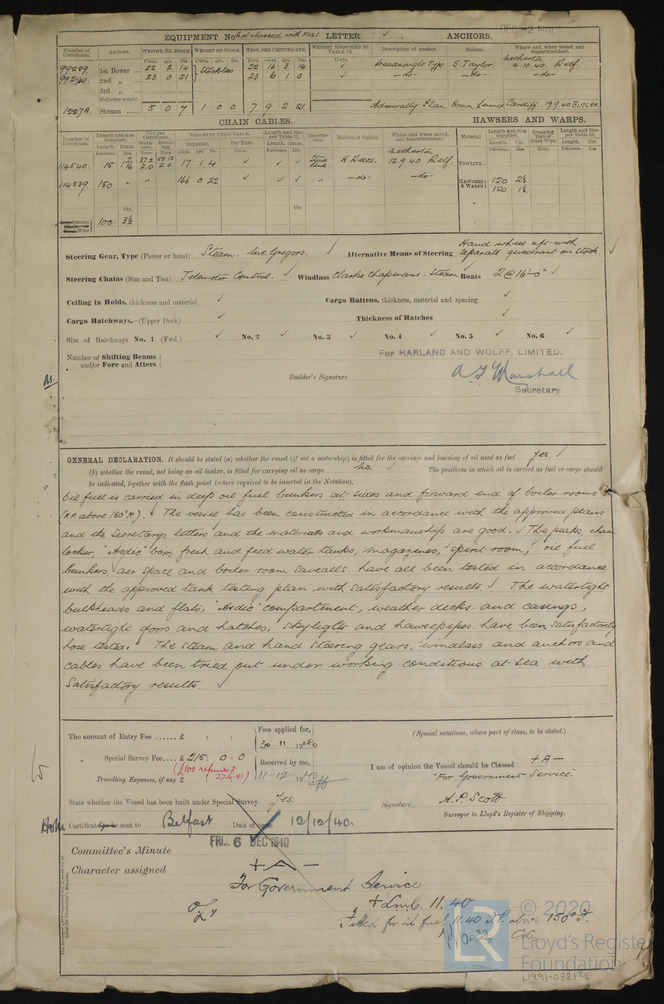 EQUIPMENT No. not classed with No 1. LETTER ANCHORS.
Number of Certificate. Anchors. WEIGHT, EX. STOCK WEIGHT OF STOCK. TEST, PER CERTIFICATE. WEIGHT REQUIRED BY TABLE 31. Description of Anchor. Makers. Where and when tested and Superintendent.
Cwts. qrs. lbs. Cwts. qrs. lbs. Tons. cwts. qrs. lbs. Cwts.
99289. 1st Bower ... 22 2 14 Stockless 22 16 3 14 Dreadnought Type S. Taylor Netherton 4.10.40. Relf.
99290. 2nd „ ... 23 0 21 23 6 1 0 -do- -do- -do-
3rd „ ...
Collective weight
1227A. Stream ... 5 0 7 1 0 0 7 9 2 21 Admiralty Plan. Brown Lennox Cardiff. 19.9.40 BUTLER.
CHAIN CABLES. HAWSERS AND WARPS.
114540. 15 1 7/16 17 1 4 Stud Link H. Wood. Netherton 12.9.40 Relf
114539 150 " 166 0 22 -do- -do-
TOWLINE
HAWSERS & WARPS 120 2½
120 1½
100 3½
Steering Gear, Type (Power or hand) Steam. McGregors. Alternative Means of Steering Hand wheel aft with separate quadrant on stock
Steering Chains (Size and Test) Telemotor Control. Windlass Clarke Chapmans. Steam Boats 2 @ 16'-0"
Ceiling in Holds, thickness and material Cargo Battens, thickness, material and spacing
Cargo Hatchways.—(Upper Deck) Thickness of Hatches
Size of Hatchways No. 1 (Fwd.) No. 2 No. 3 No. 4 No. 5 No. 6
Number of Shifting Beams and/or Fore and Afters
FOR HARLAND AND WOLFF, LIMITED.
Builder's Signature A F Marshall
Secretary.
GENERAL DECLARATION. It should be stated (a) whether the vessel (if not a motorship) is fitted for the carriage and burning of oil used as fuel yes.
(b) whether the vessel, not being an oil tanker, is fitted for carrying oil as cargo no. The positions in which oil is carried as fuel or cargo should
be indicated, together with the flash point (where required to be inserted in the Notation).
Oil fuel is carried in deep oil fuel bunkers at sides and forward end of boiler rooms
(F.P. above 150°F.). The vessel has been constructed in accordance with the approved plans
and the Secretarys letters and the materials and workmanship are good. The peaks, chain
locker, "Asdic" box, fresh and feed water tanks, magazines, spirit room, oil fuel
bunkers, air space and boiler room savealls have all been tested in accordance
with the approved tank testing plan with satisfactory results. The watertight
bulkheads and flats, "Asdic" compartment, weather decks and casings,
watertight doors and hatches, skylights and hawsepipes have been satisfactorily
hose tested. The steam and hand steering gears, windlass and anchors and
cables have been tried out under working conditions at sea with
satisfactory results.
The amount of Entry Fee ...... £ : :
Fees applied for, 30.11.1940
(Special notations, where part of class, to be stated.)
Special Survey Fee.... £ 215 : 0 : 0
Received by me,
(£100 27.6.41)
11-12-1940
Travelling Expenses, if any £
I am of opinion the Vessel should be Classed +A-
"For Government Service."
State whether the Vessel has been built under Special Survey Yes.
Signature A.P. Scott
Surveyor to Lloyd's Register of Shipping.
Certificate to be sent to Belfast Date of issue 12/12/40.
FRI. 6 DEC 1940
Committee's Minute
Character assigned +A-
For Government Service
+ L.M.C. 11.40
Fitted for oil fuel 11.40 F.P. above 150°F.
© 2020
Lloyd's Register
Foundation